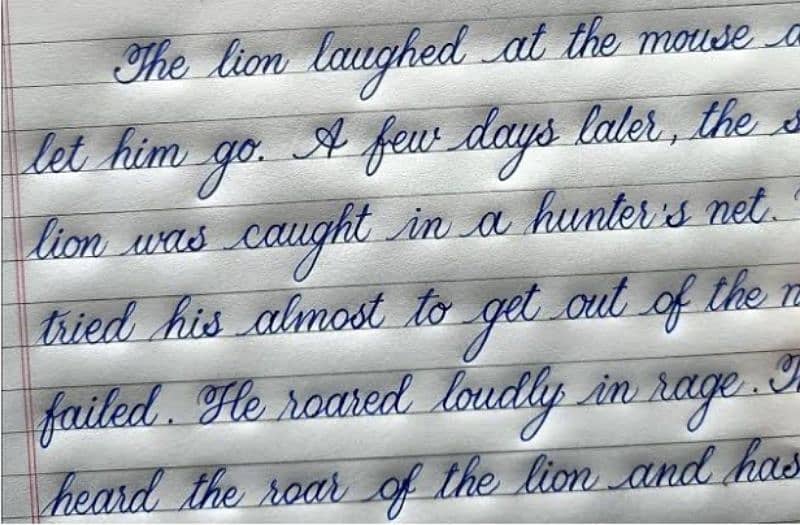 The lion laughed at the mouse
let him go. A few days later, the
lion was caught in a hunter's net.
tried his almost to get out of the
failed. He roared loudly in rage.
heard the roar of the lion and has